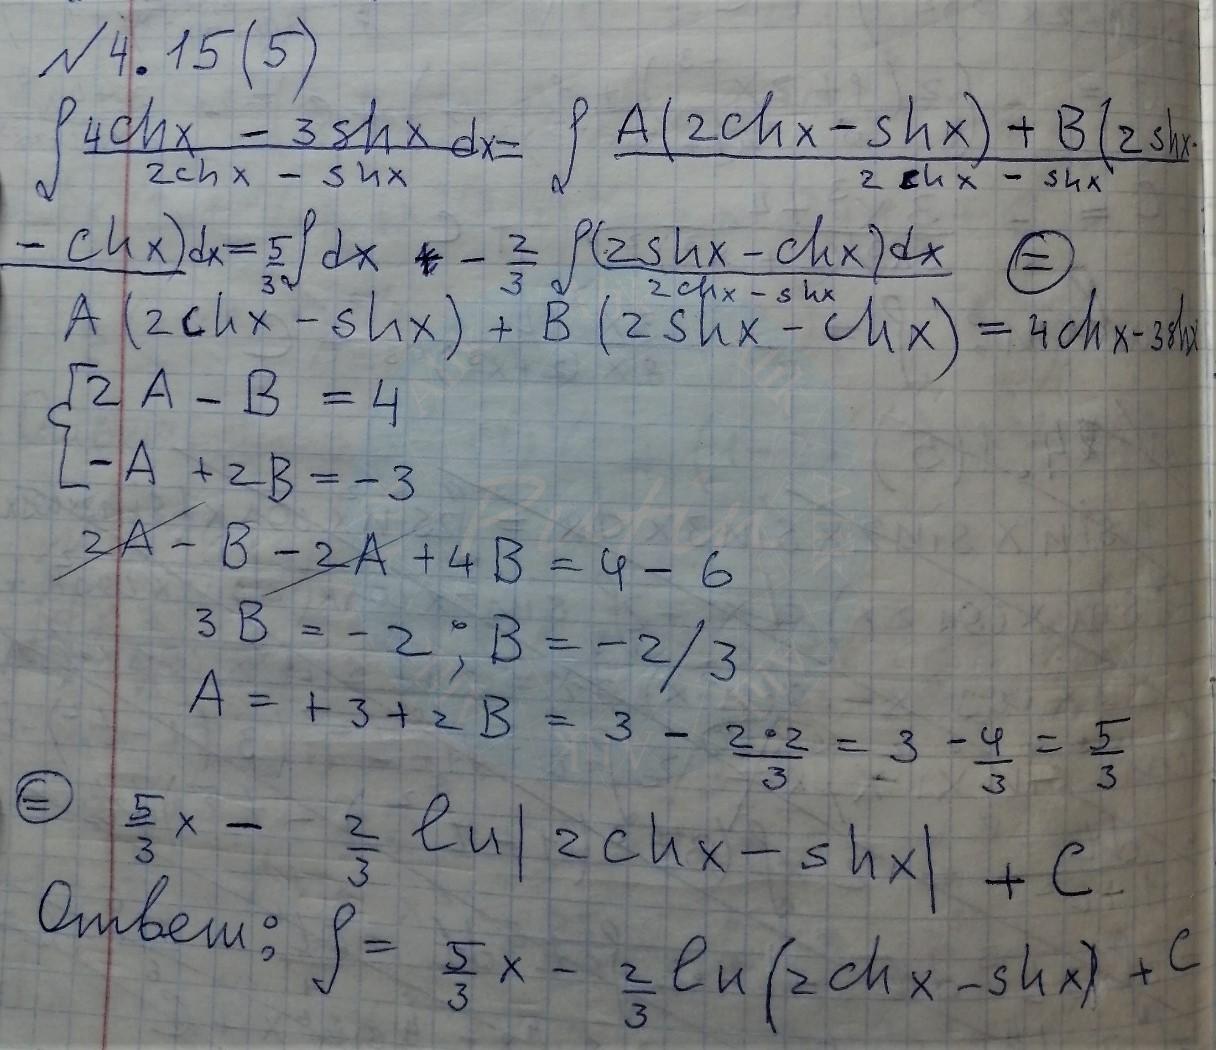 №4.15(5)
∫ (4chx - 3shx)/(2chx - shx) dx = ∫ (A(2chx - shx) + B(2shx -
- chx))/(2chx - shx) dx = 5/3 ∫ dx - 2/3 ∫ (2shx - chx)dx/(2chx - shx) ⊜
A(2chx - shx) + B(2shx - chx) = 4chx - 3shx
{ 2A - B = 4
-A + 2B = -3
2A - B - 2A + 4B = 4 - 6
3B = -2 ; B = -2/3
A = +3 + 2B = 3 - 2·2/3 = 3 - 4/3 = 5/3
⊜ 5/3 x - 2/3 ln|2chx - shx| + C
Ответ: ∫ = 5/3 x - 2/3 ln(2chx - shx) + C